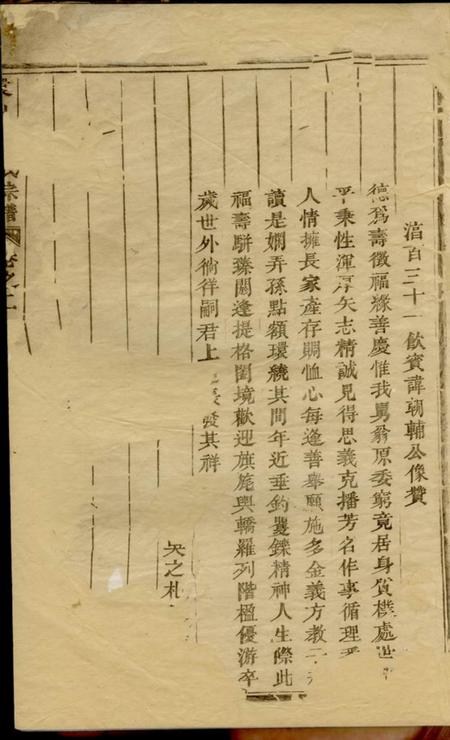 湻百三十一飲賓諱朝輔公像贊
德爲壽徵福緣善慶惟我舅翁原委窮竟居身質樸處世
平秉性渾厚矢志精誠見得思義克播芳名作事循理
人情擁長家產存賙恤心每逢善舉願施多金義方教子
讀是嫻弄孫點額環繞其間年近垂釣矍鑠精神人生際此
福壽駢臻閼逢提格闔境歡迎旗旄與轎羅列階楹優游卒
歲世外徜徉嗣君上 發其祥
矢之札
氏宗譜 卷之二